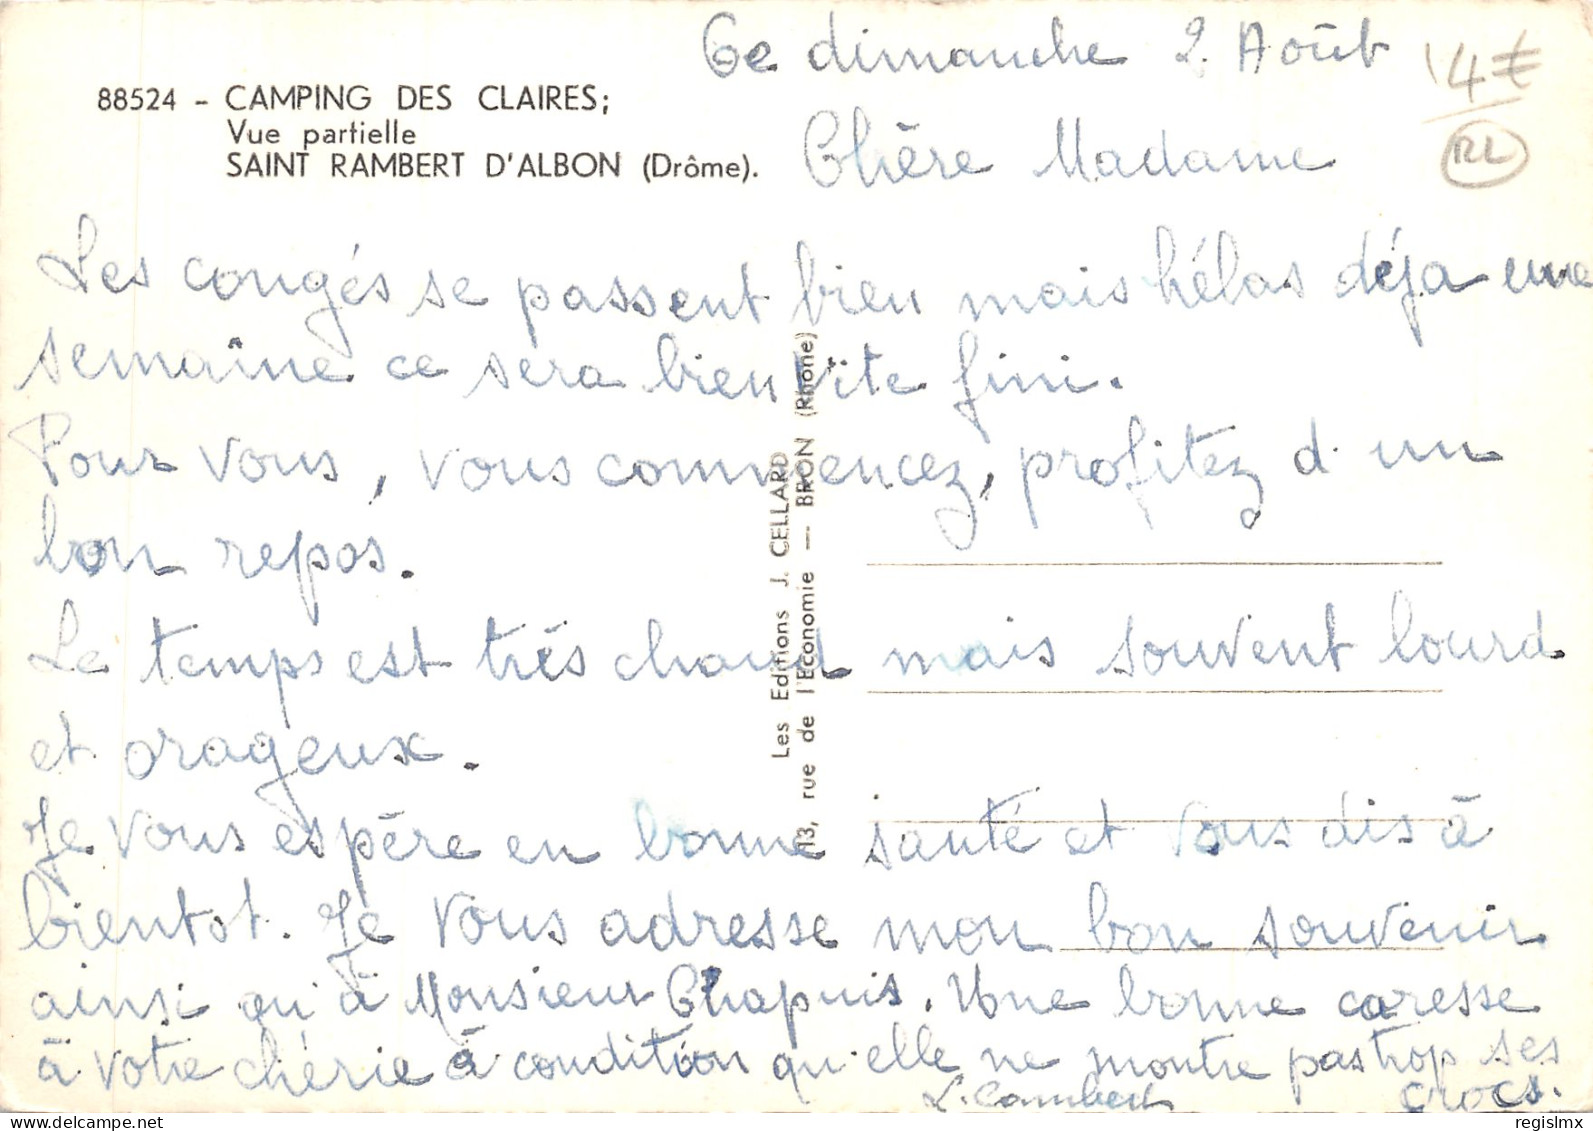 Ce dimanche 2. Août
14€
RL
88524 - CAMPING DES CLAIRES;
Vue partielle
SAINT RAMBERT D'ALBON (Drôme).
Chère Madame
Les congés se passent bien mais hélas déja une
semaîne ce sera bien vîte fini.
Pour vous, vous commencez, profitez d'un
bon repos.
Le temps est très chaud mais souvent lourd
et orageux.
Je vous espère en bonne santé et vous dis à
bientot. Je vous adresse mon bon souvenir
ainsi qu'à Monsieur Chapuis. Une bonne caresse
à votre chérie à condition qu'elle ne montre pas trop ses
crocs.
L. Lambert
Les Editions J. CELLARD
13, rue de l'Economie — BRON (Rhône)
regislmx